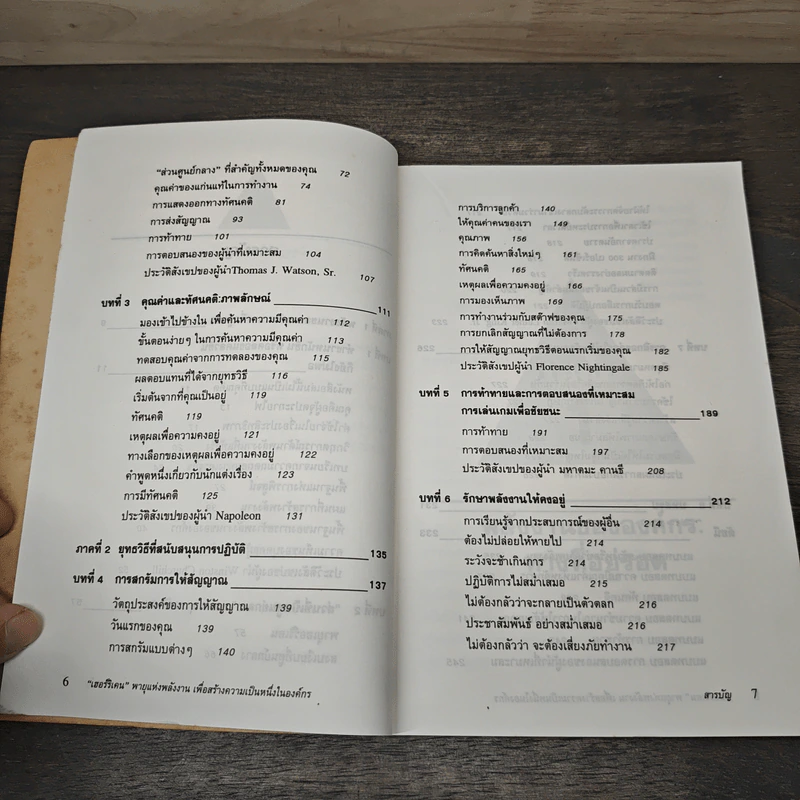 “ส่วนศูนย์กลาง” ที่สำคัญทั้งหมดของคุณ 72
คุณค่าของแก่นแท้ในการทำงาน 74
การแสดงออกทางทัศนคติ 81
การส่งสัญญาณ 93
การท้าทาย 101
การตอบสนองของผู้นำที่เหมาะสม 104
ประวัติสังเขปของผู้นำThomas J. Watson, Sr. 107
บทที่ 3 คุณค่าและทัศนคติ:ภาพลักษณ์ 111
มองเข้าไปข้างใน เพื่อค้นหาความมีคุณค่า 112
ขั้นตอนง่ายๆ ในการค้นหาความมีคุณค่า 113
ทดสอบคุณค่าจากการทดลองของคุณ 115
ผลตอบแทนที่ได้จากยุทธวิธี 116
เริ่มต้นจากที่คุณเป็นอยู่ 119
ทัศนคติ 119
เหตุผลเพื่อความคงอยู่ 121
ทางเลือกของเหตุผลเพื่อความคงอยู่ 122
คำพูดหนึ่งเกี่ยวกับนักแต่งเรื่อง 123
การมีทัศนคติ 125
ประวัติสังเขปของผู้นำ Napoleon 131
ภาคที่ 2 ยุทธวิธีที่สนับสนุนการปฏิบัติ 135
บทที่ 4 การสกรัมการให้สัญญาณ 137
วัตถุประสงค์ของการให้สัญญาณ 139
วันแรกของคุณ 139
การสกรัมแบบต่างๆ 140
6 “เฮอร์ริเคน” พายุแห่งพลังงาน เพื่อสร้างความเป็นหนึ่งในองค์กร
การบริการลูกค้า 140
ให้คุณค่าคนของเรา 149
คุณภาพ 156
การคิดค้นหาสิ่งใหม่ๆ 161
ทัศนคติ 165
เหตุผลเพื่อความคงอยู่ 166
การมองเห็นภาพ 169
การทำงานร่วมกับสต๊าฟของคุณ 175
การยกเลิกสัญญาณที่ไม่ต้องการ 178
การให้สัญญาณยุทธวิธีตอนแรกเริ่มของคุณ 182
ประวัติสังเขปผู้นำ Florence Nightingale 185
บทที่ 5 การท้าทายและการตอบสนองที่เหมาะสม
การเล่นเกมเพื่อชัยชนะ 189
การท้าทาย 191
การตอบสนองที่เหมาะสม 197
ประวัติสังเขปของผู้นำ มหาตมะ คานธี 208
บทที่ 6 รักษาพลังงานให้คงอยู่ 212
การเรียนรู้จากประสบการณ์ของผู้อื่น 214
ต้องไม่ปล่อยให้หายไป 214
ระวังจะช้าเกินการ 214
ปฏิบัติการไม่สม่ำเสมอ 215
ไม่ต้องกลัวว่าจะกลายเป็นตัวตลก 216
ประชาสัมพันธ์ อย่างสม่ำเสมอ 216
ไม่ต้องกลัวว่า จะต้องเสี่ยงภัยทำงาน 217
สารบัญ 7